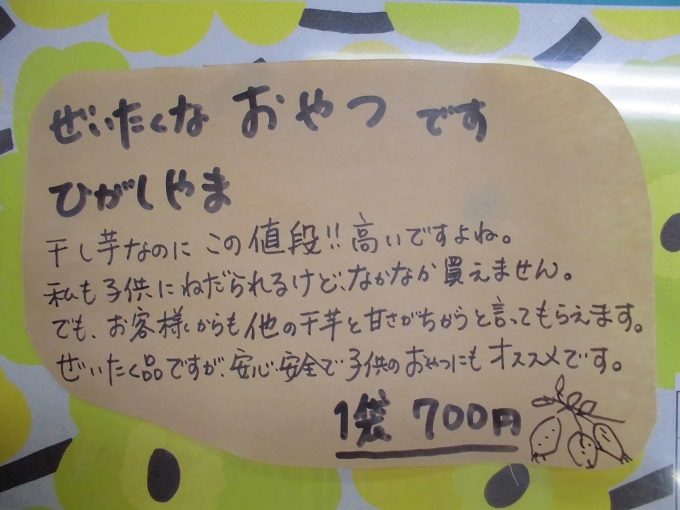 ぜいたくな おやつ です
ひがしやま
干し芋なのに この値段!! 高いですよね。
私も子供にねだられるけど、なかなか買えません。
でも、お客様からも他の干芋と甘さがちがうと言ってもらえます。
ぜいたく品ですが、安心・安全で子供のおやつにもオススメです。
1袋 700円